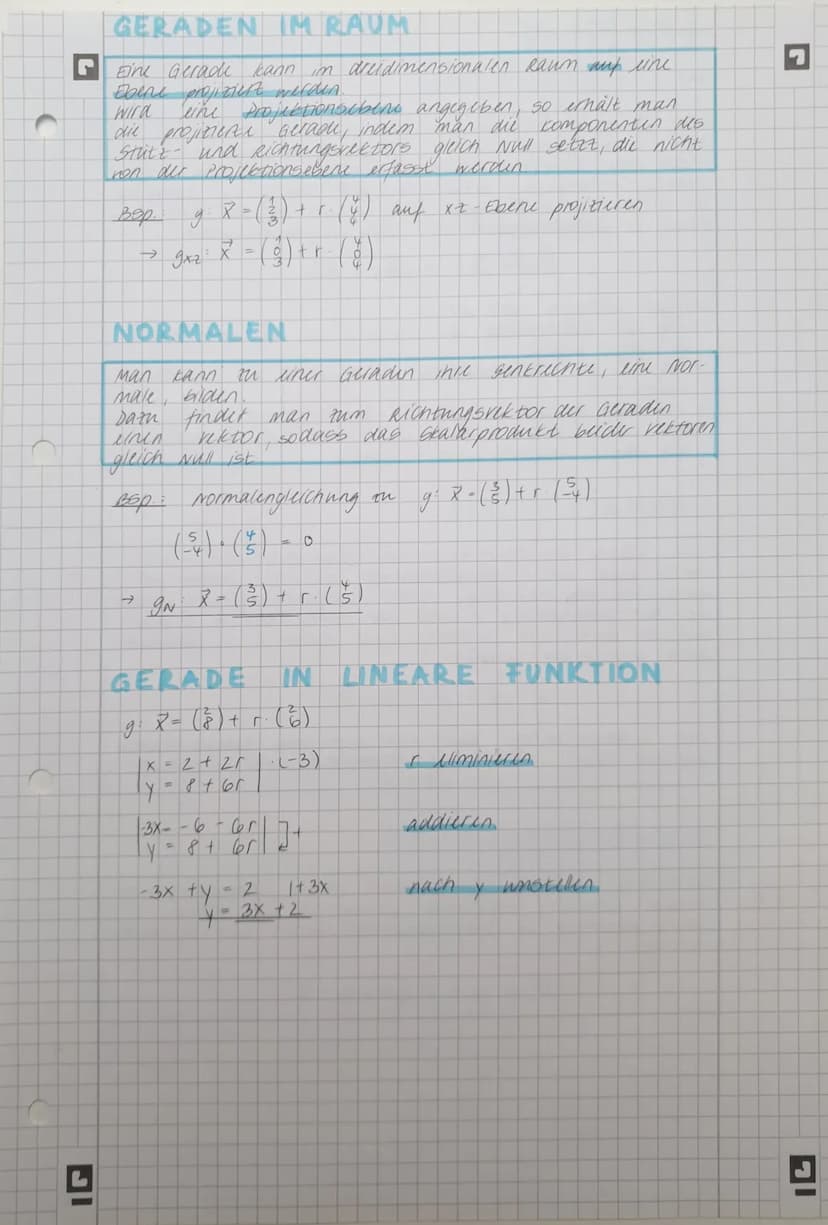 GERADEN IM RAUM
Eine Gerade kann im dreidimensionalen Raum auf eine
Ebene projiziert werden.
Wird eine Projektionsebene angegeben, so erhält man
die projizierte Gerade, indem man die componenten des
Stütz- und Richtungsvektors gleich Null setzt, die nicht
von der Projektionsebene erfasst werden
Bsp. g: x⃗ = (1 2 3) + r · (4 4 4) auf xz-Ebene projizieren
→ gxz: x⃗ = (1 0 3) + r · (4 0 4)
NORMALEN
Man kann zu einer Geraden ihre Senkrechte, eine Nor-
male, bilden.
Dazu findet man zum Richtungsvektor der Geraden
einen Vektor, sodass das Skalarprodukt beider Vektoren
gleich Null ist
Bsp.: Normalengleichung zu g: x⃗ = (3 5) + r (5 -4)
(5 -4) · (4 5) = 0
→ gN: x⃗ = (3 5) + r · (4 5)
GERADE IN LINEARE FUNKTION
g: x⃗ = (2 8) + r · (2 6)
|x = 2 + 2r| · (-3) r eliminieren
|y = 8 + 6r|
|-3x = -6 - 6r| ]+ addieren
|y = 8 + 6r|
-3x + y = 2 |+3x nach y umstellen
y = 3x + 2